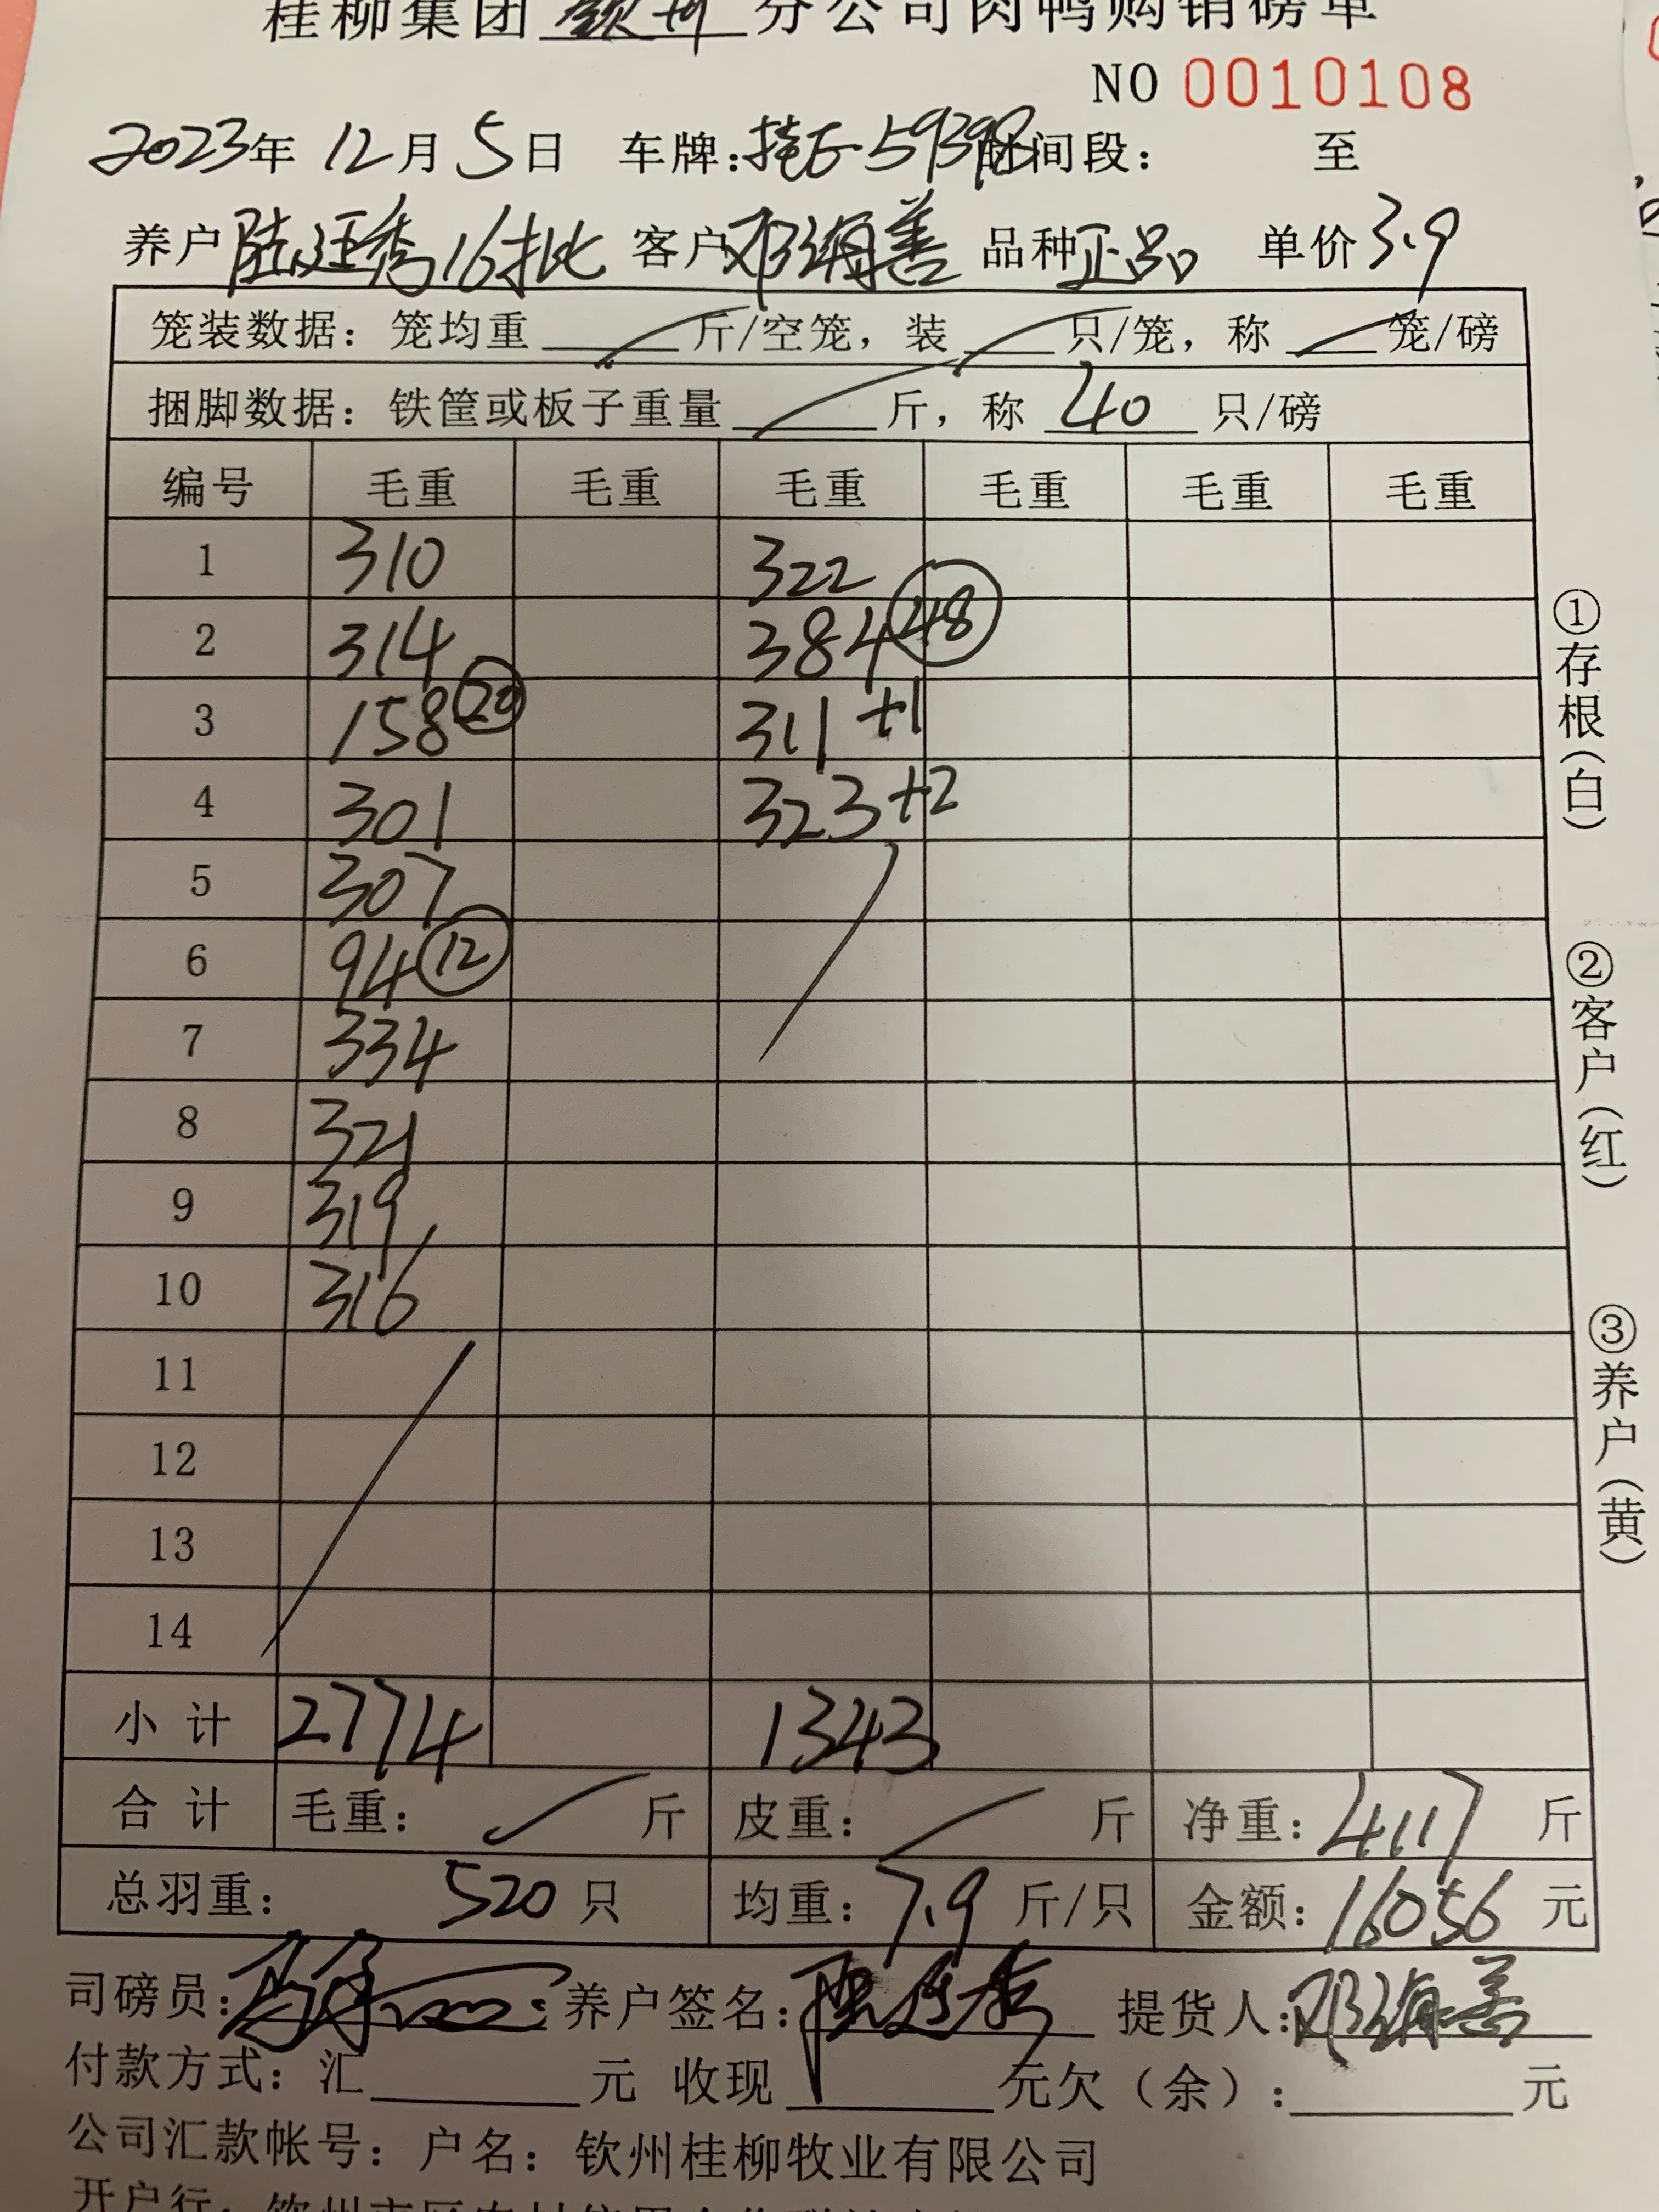 桂柳集团 钦州 分公司肉鸭购销磅单
NO 0010108
2023年 12月 5日 车牌: 59398 时间段: 至
养户 陆廷秀16批 客户 邓海善 品种 正品 单价 3.9
笼装数据: 笼均重 斤/空笼, 装 只/笼, 称 笼/磅
捆脚数据: 铁筐或板子重量 斤, 称 40 只/磅
编号 毛重 毛重 毛重 毛重 毛重 毛重
1 310 322
2 314 384 48
3 158 20 311 +1
4 301 323 +2
5 307
6 94 12
7 334
8 321
9 319
10 316
11
12
13
14
小计 2774 1343
合计 毛重: 斤 皮重: 斤 净重: 4117 斤
总羽重: 520 只 均重: 7.9 斤/只 金额: 16056 元
司磅员: 养户签名: 陆廷秀 提货人: 邓海善
付款方式: 汇 元 收现 元欠(余): 元
公司汇款帐号: 户名: 钦州桂柳牧业有限公司
开户行:
①存根(白)
②客户(红)
③养户(黄)